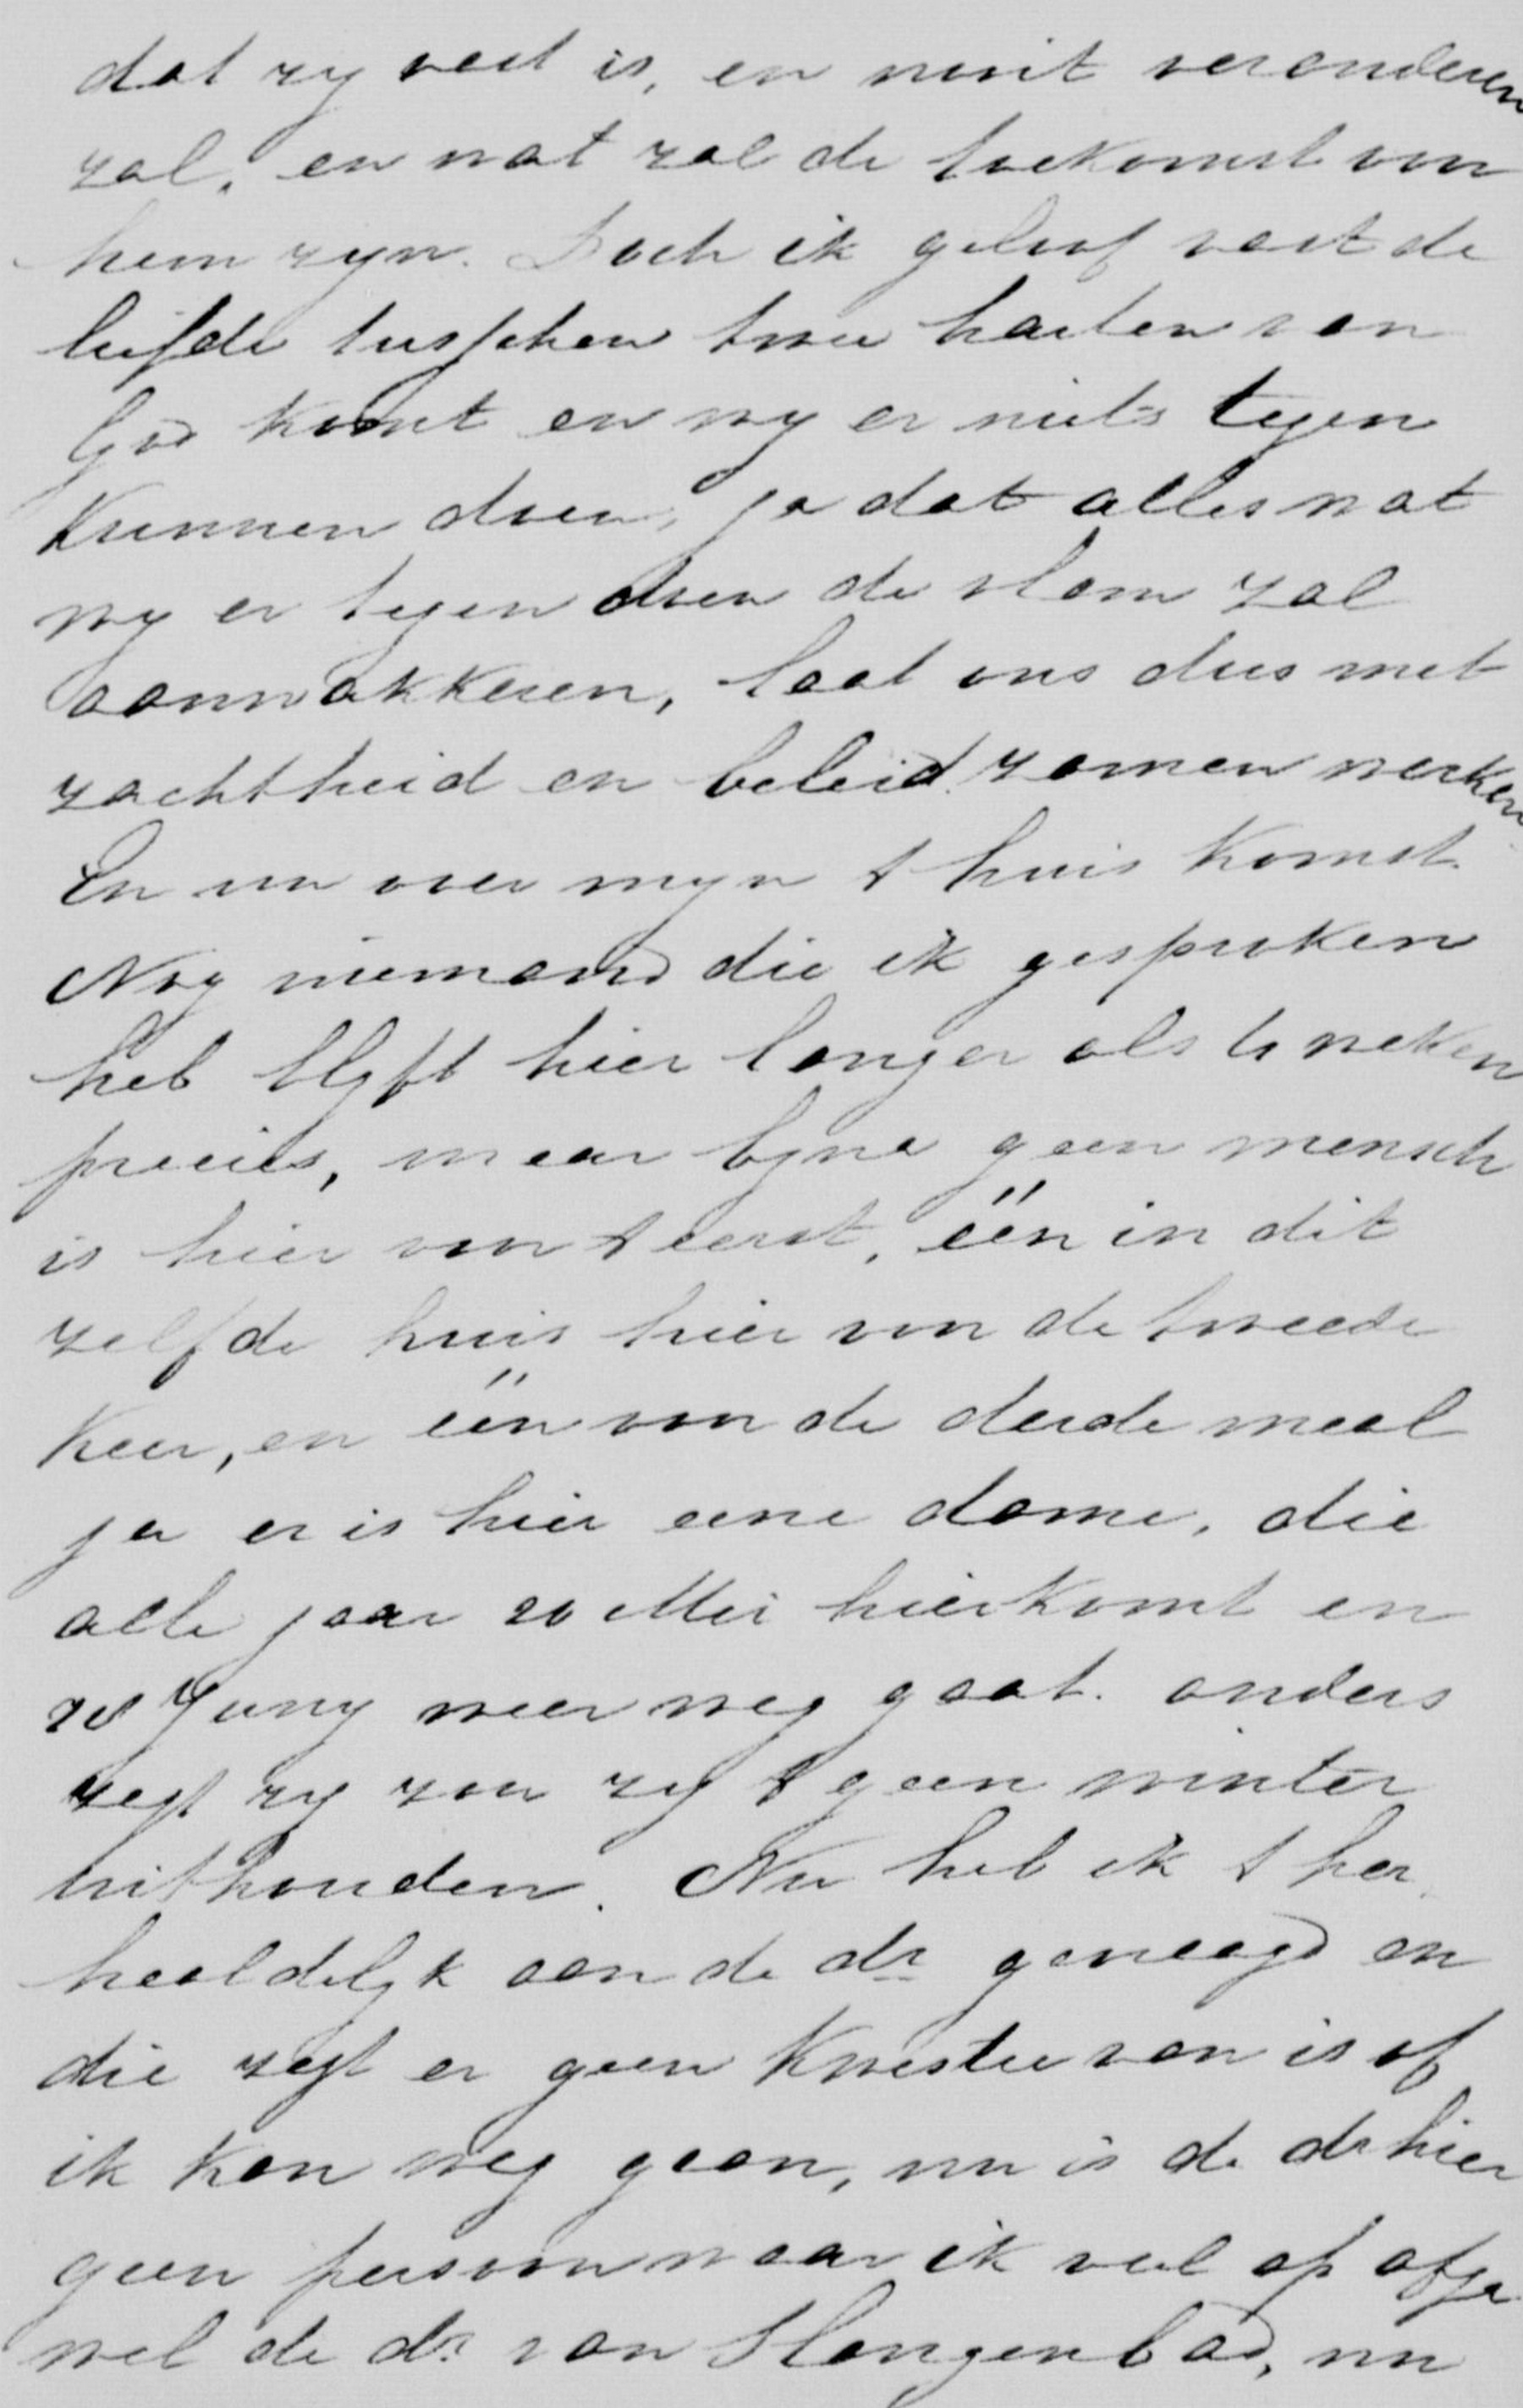 dat zy vast is, en nooit veranderen
zal, en wat zal de toekomst van
hem zyn. Doch ik geloof vast de
liefde tusschen twee harten van
God komt en wy er niets tegen
kunnen doen, ja dat alles wat
wy er tegen doen de vlam zal
aanwakkeren, laat ons dus met
zachtheid en beleid zamen werken
En nu over myn t huis komst.
Nog niemand die ik gesproken
heb blyft hier langer als 4 weken
precies, maar byna geen mensch
is hier voor t eerst, één in dit
zelfde huis hier voor de tweede
keer, en één voor de derde maal
ja er is hier eene dame, die
alle jaar 20 Mei hier komt en
20 Juny weer weg gaat. anders
zegt zy zou zy t geen winter
uithouden. Nu heb ik t her
haaldelyk aan de dr gevraagd en
die zegt er geen kwestie van is of
ik kan weg gaan, nu is de dr hier
geen persoon waar ik veel op afga
wel de dr van Slangenbad, nu